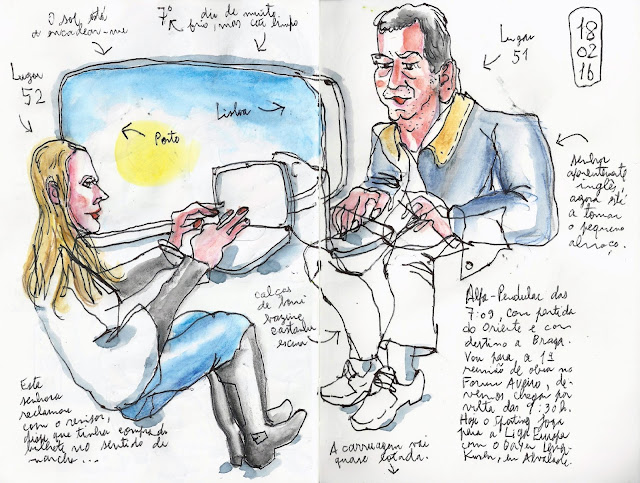 O sol está
a encadear-me
7º
dia de muito
frio, mas céu limpo
Lugar
51
18
02
16
Lugar
52
Porto
Lisboa
senhor
aparentemente
inglês,
agora está
a tomar
o pequeno
almoço.
calças
de bom
castanho
escuro
Alfa-Pendular das
7:09, com partida
do Oriente e com
destino a Braga.
Vou para a 1ª
reunião de obra no
Forum Aveiro, de-
vemos chegar por
volta das 9:30h.
Hoje o Sporting joga
para a Liga Europa
com o Bayer Lever-
kusen, em Alvalade.
Esta
senhora
reclamou
com o revisor,
disse que tinha comprado
bilhete no sentido da
marcha...
A carruagem vai
quase lotada.